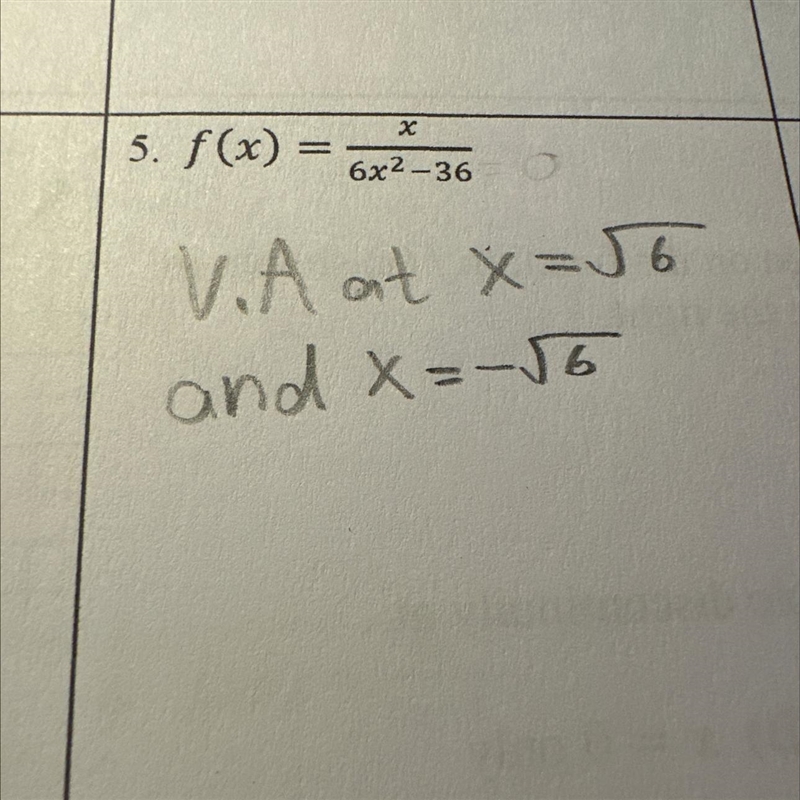 5. f(x) = x / (6x² − 36) = 0
V.A at x = √6
and x = −√6